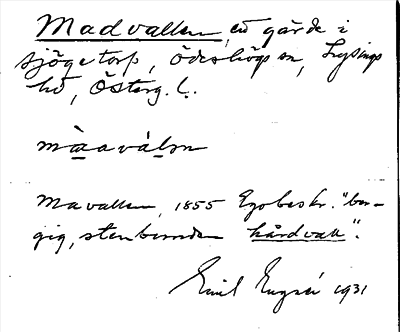 Madvallen, ett gärde i
Sjögetorp, Ödeshögs sn, Lysings
hd, Österg. l.
màavál̥ən
Mavallen, 1855 Egobeskr. "ber-
gig, stenbunden hårdvall".
Emil Engsér 1931